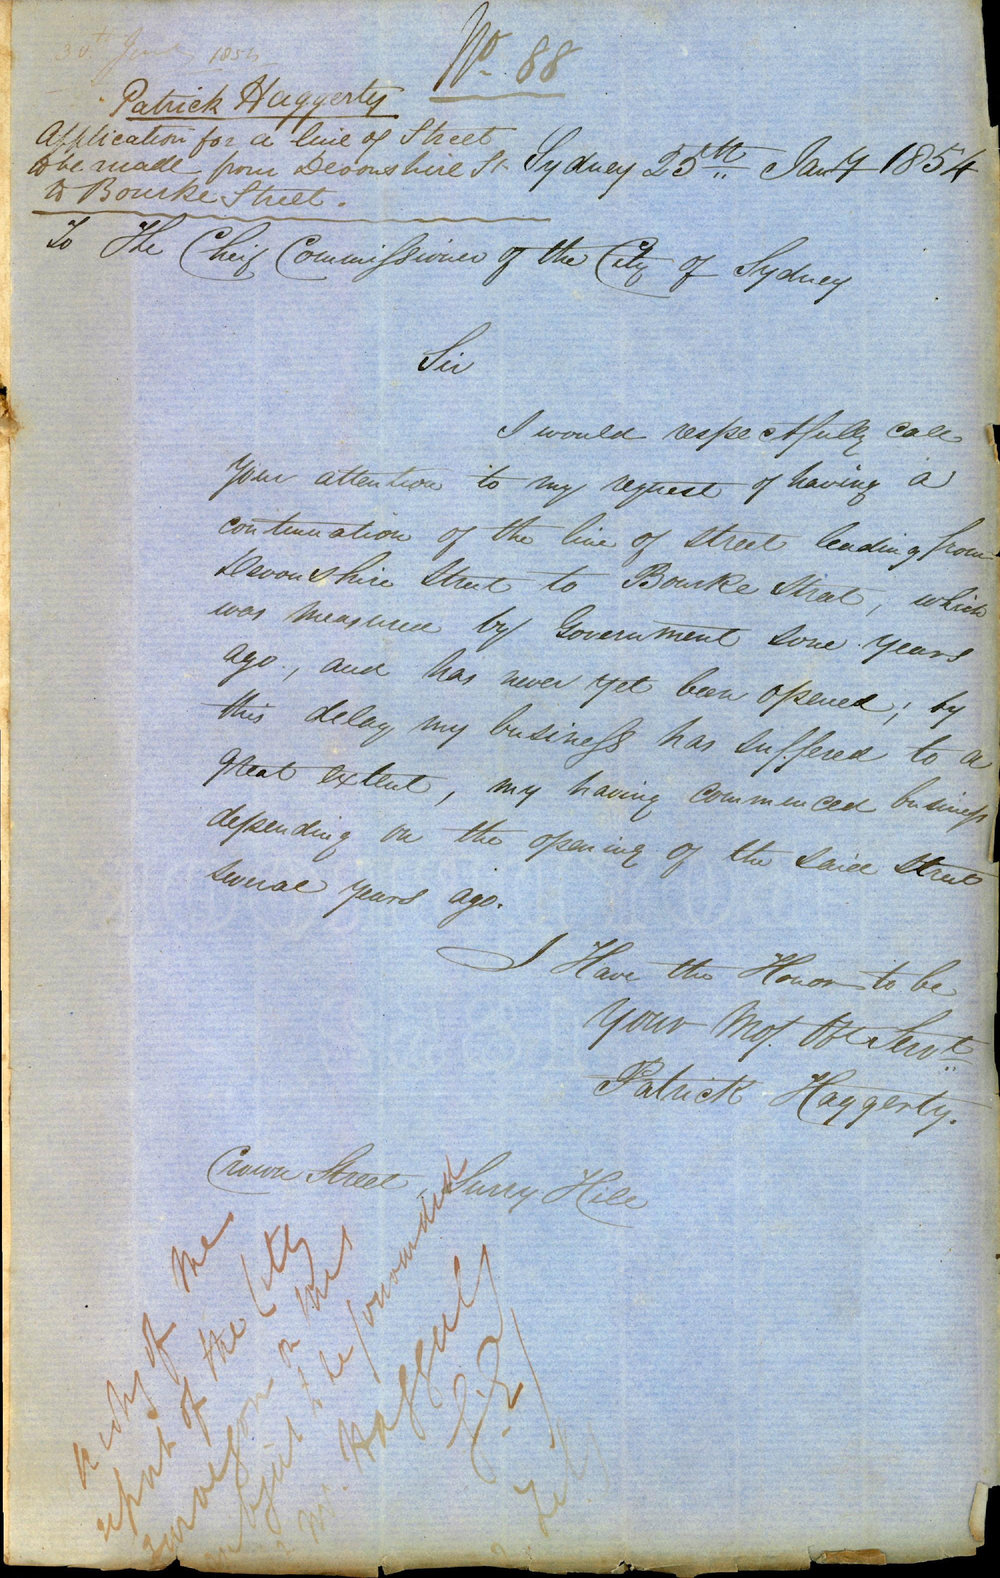 30th Jany 1854
No. 88
Patrick Haggerty
Application for a line of Street
to be made from Devonshire St
to Bourke Street.
Sydney 25th Jany 1854
To The Cheif Commissioner of the City of Sydney
Sir
I would respectfully call
your attention to my request of having a
continuation of the line of street leading from
Devonshire Street to Bourke Street, which
was measured by Government some years
ago, and has never yet been opened; by
this delay my business has suffered to a
great extent, my having commenced business
depending on the opening of the said Street
several years ago.
I Have the Honor to be
Your Mos. Obt Servt
Patrick Haggerty.
Crown Street, Surry Hill
A copy of the
report of the City
Surveyor on this
subject to be forwarded
to Mr. Haggerty